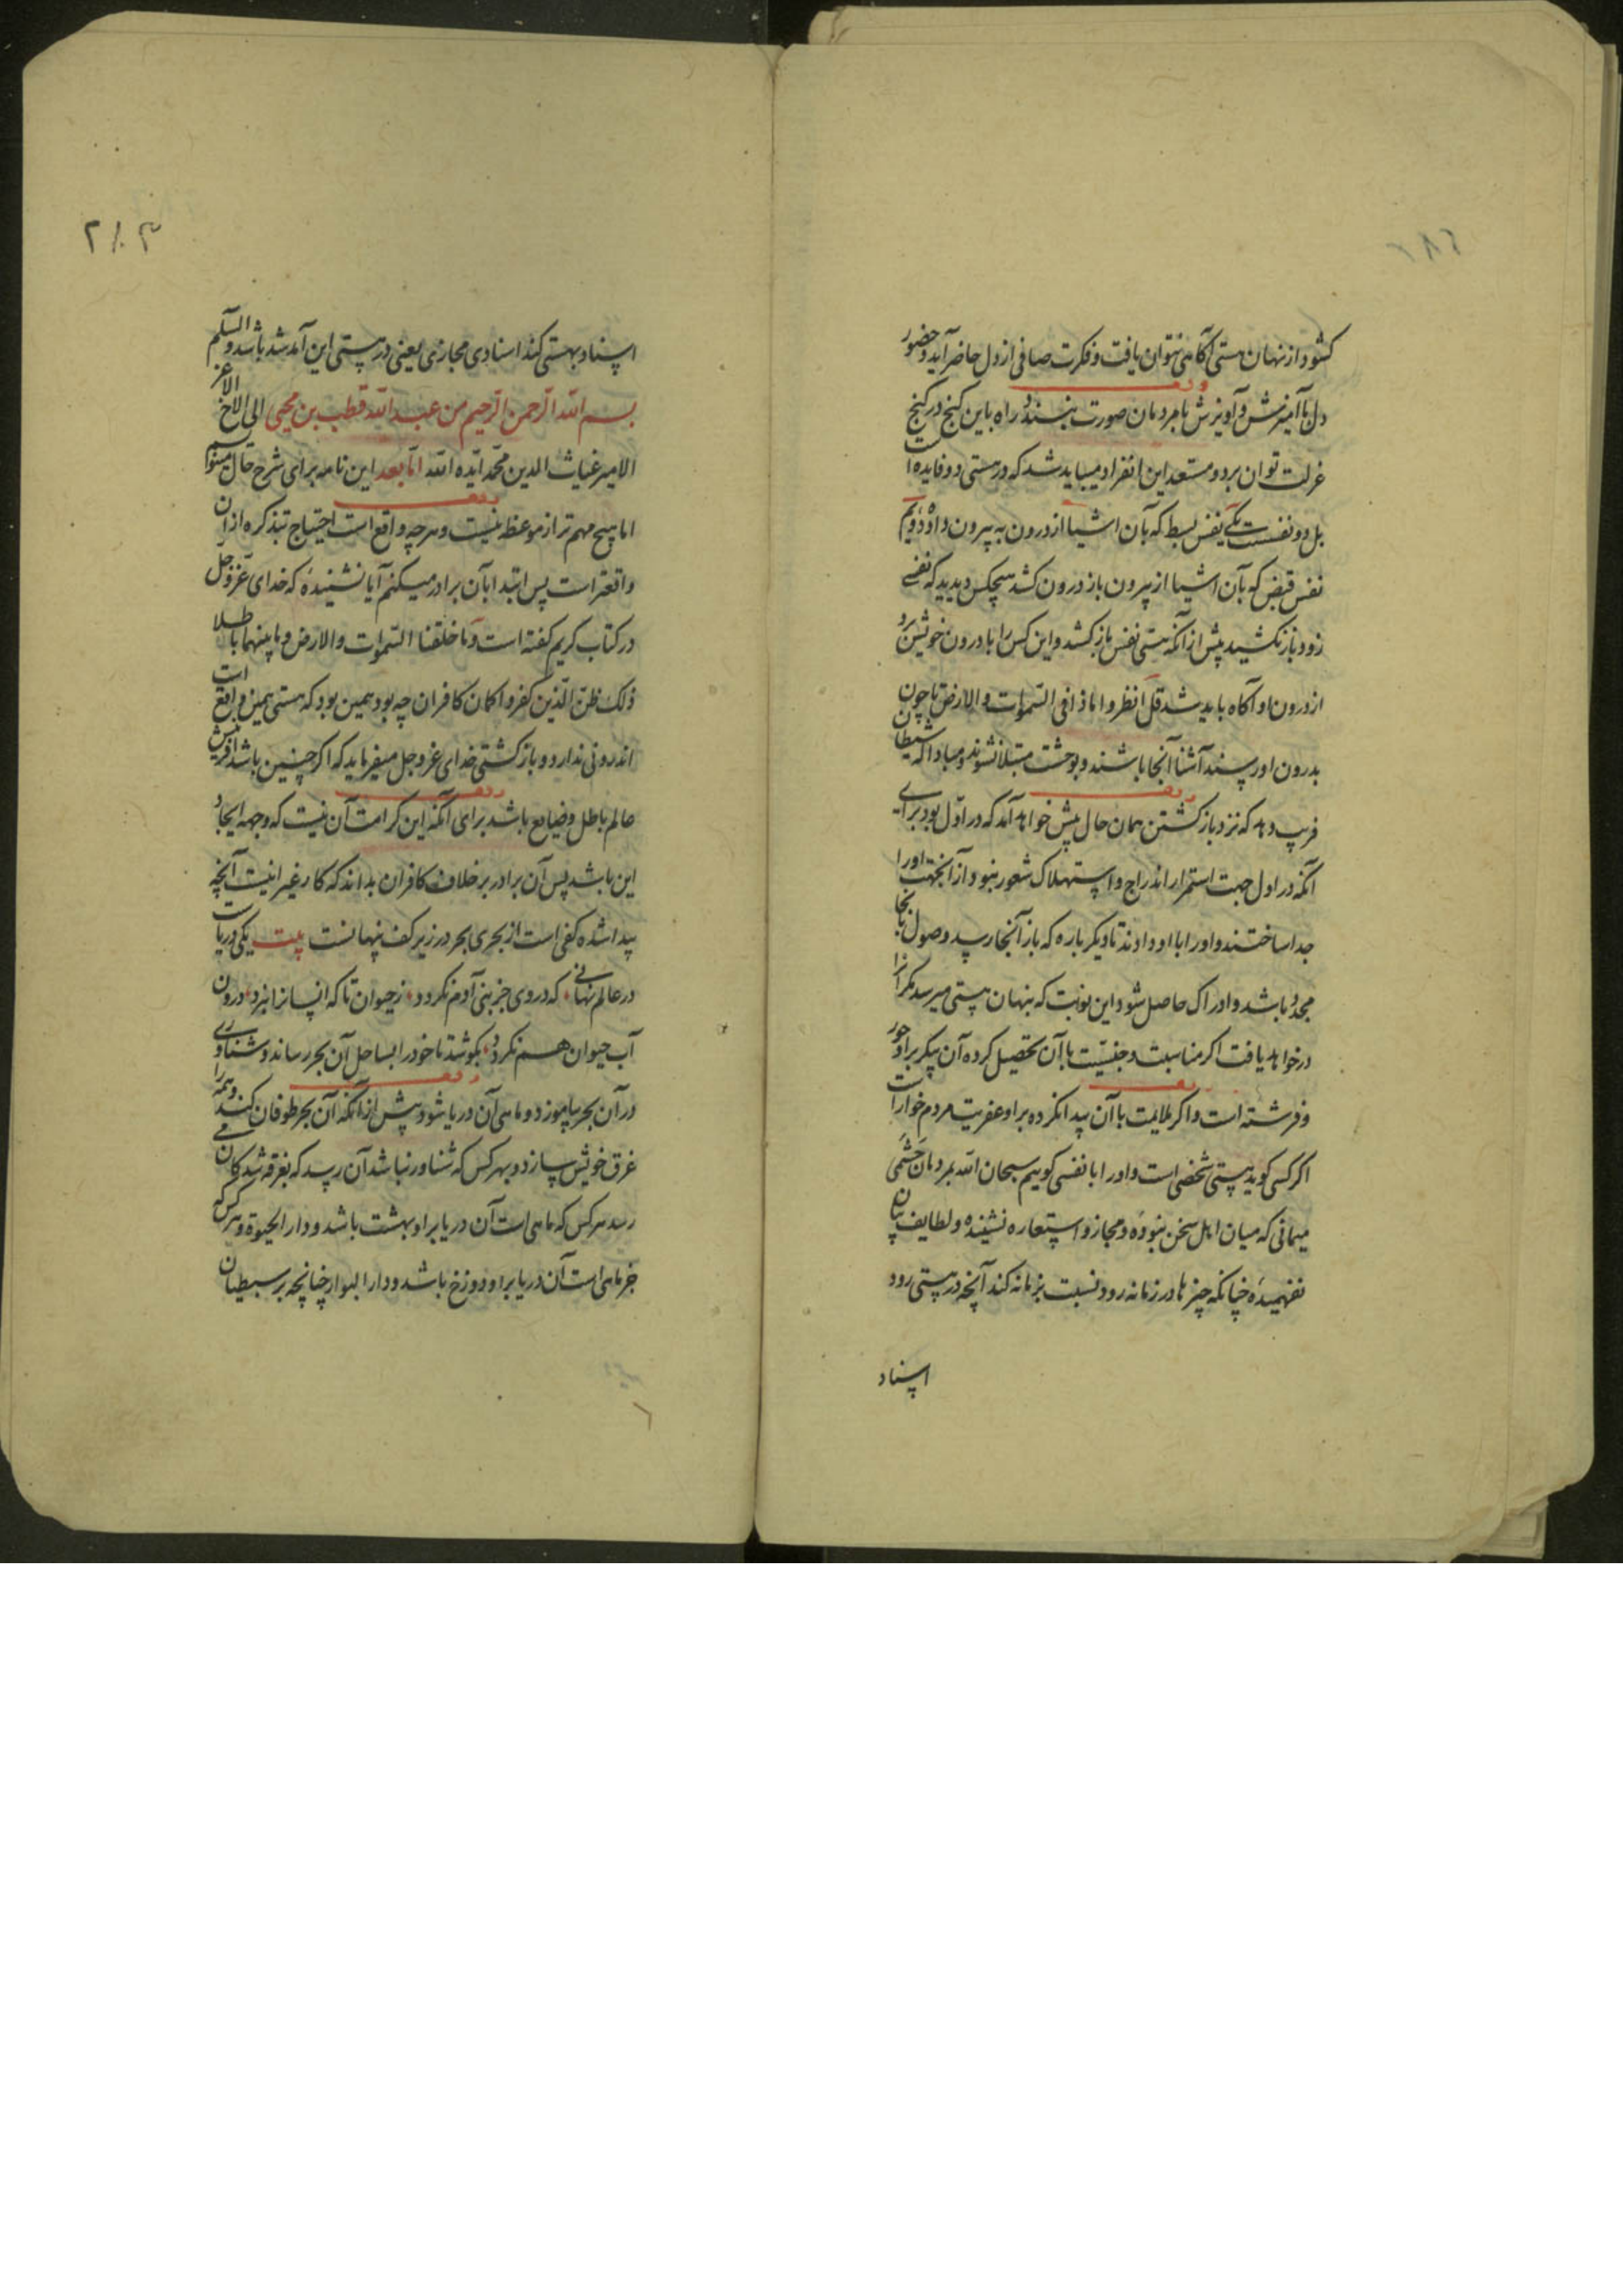 ۲۸۲
کشود از نهان هستی آکاهی نتوان یافت و فکرت صافی از دل حاضر آید و حضور
دل با آمیزش و آویزش با مردمان صورت نبندد راه باین کنج در کنج
عزلت توان برد و مستعد این انفراد میباید شد که در هستی دو فایده است
بل دو نفست یکی نفس بسط که بآن اشیا از درون به بیرون داده دویم
نفس قبض که بآن اشیا از بیرون باز درون کشد هیچکس دیدید که نفسی
زود باز نکشید پیش از آنکه هستی نفس باز کشد و این کس را با درون خویش برد
از درون او آکاه باید شد قل انظروا ماذا فی السموات والارض تا چون
بدرون او رسند آشنا آنجا باشند و بوحشت مبتلا نشوند و مبادا که شیطان
فریب دهد که نزد باز کشتن همان حال پیش خواهد آمد که در اول بود برای
آنکه در اول جهت استمرار اندراج و استهلاک شعور نبود از آنجهت او را
جدا ساختند و او را با او دادند تا دیکر باره که باز آنجا رسد وصول بآنجا
مجدد باشد و ادراک حاصل شود این نوبت که بنهان هستی میرسد مکر آنرا
در خواهد یافت اکر مناسبت و جنسیت با آن تحصیل کرده آن پیکر بر او حور
و فرشته است و اکر ملایمت با آن پیدا نکرده بر او عفریت مردم خوار است
اکر کسی کوید هستی شخصی است و او را با نفسی کوییم سبحان الله بمردمان حشمی
میمانی که میان اهل سخن نبوده و مجاز و استعاره نشنیده و لطایف بیان
نفهمیده چنانکه چیزها در زمانه رود نسبت بزمانه کند آنچه در هستی رود
اسناد
۲۸۳
اسناد بهستی کند اسنادی مجازی یعنی در هستی این آمد شد باشد والسلم
بسم الله الرحمن الرحیم من عبد الله قطب بن محیی الی الاخ الاعز
الامیر غیاث الدین محمد ایده الله اما بعد این نامه برای شرح حال مینو
اما هیچ مهم تر از موعظه نیست و هر چه واقع است احتیاج تبذکره از آن
واقعتر است پس ابتدا بآن برادر میکنم آیا نشنیدهٔ که خدای عز و جل
در کتاب کریم کفته است و ما خلقنا السموات والارض و ما بینهما باطلا
ذلک ظن الذین کفروا کمان کافران چه بود همین بود که هستی همین واقع است
اندرونی ندارد و باز کشتی خدای عز و جل میفرماید که اکر چنین باشد آفرینش
عالم باطل و ضایع باشد برای آنکه این کرامت آن نیست که وجهه ایجاد
این باشد پس آن برادر بر خلاف کافران بداند که کار غیر اینست آنچه
پیدا شده کفی است از بحری بحر در زیر کف پنهانست بیت یکی دریاست
در عالم نهانی که در وی جز بنی آدم نکردد ز حیوان تا که انسانرا نبرد درون
آب حیوان هم نکردد بکوشد تا خود را بساحل آن بحر رساند و شناوری
در آن بحر بیاموزد و ماهی آن دریا شود پیش از آنکه آن بحر طوفان کند و همه را
غرق خویش سازد و بهر کس که شناور نباشد آن رسد که بغرقه شدکان می
رسد هر کس که ماهی است آن دریا بر او بهشت باشد و دار الحیوة و هر کس که
خر ماهی است آن دریا بر او دوزخ باشد و دار البوار چنانچه بر سبطیان